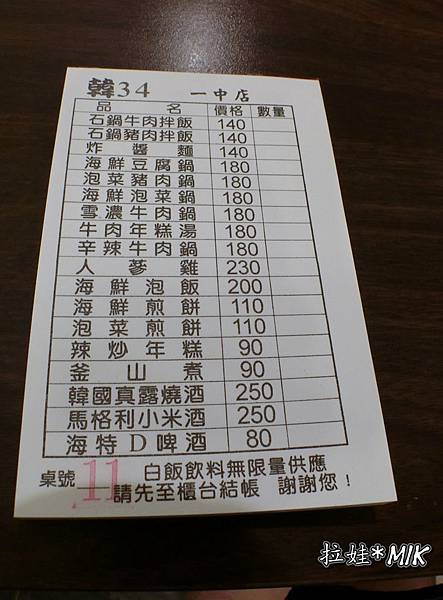 韓34 一中店
品名 價格 數量
石鍋牛肉拌飯 140
石鍋豬肉拌飯 140
炸醬麵 140
海鮮豆腐鍋 180
泡菜豬肉鍋 180
海鮮泡菜鍋 180
雪濃牛肉鍋 180
牛肉年糕湯 180
辛辣牛肉鍋 180
人蔘雞 230
海鮮泡飯 200
海鮮煎餅 110
泡菜煎餅 110
辣炒年糕 90
釜山煮 90
韓國真露燒酒 250
馬格利小米酒 250
海特D啤酒 80
桌號 11 白飯飲料無限量供應
請先至櫃台結帳 謝謝您！
拉娃*MIK